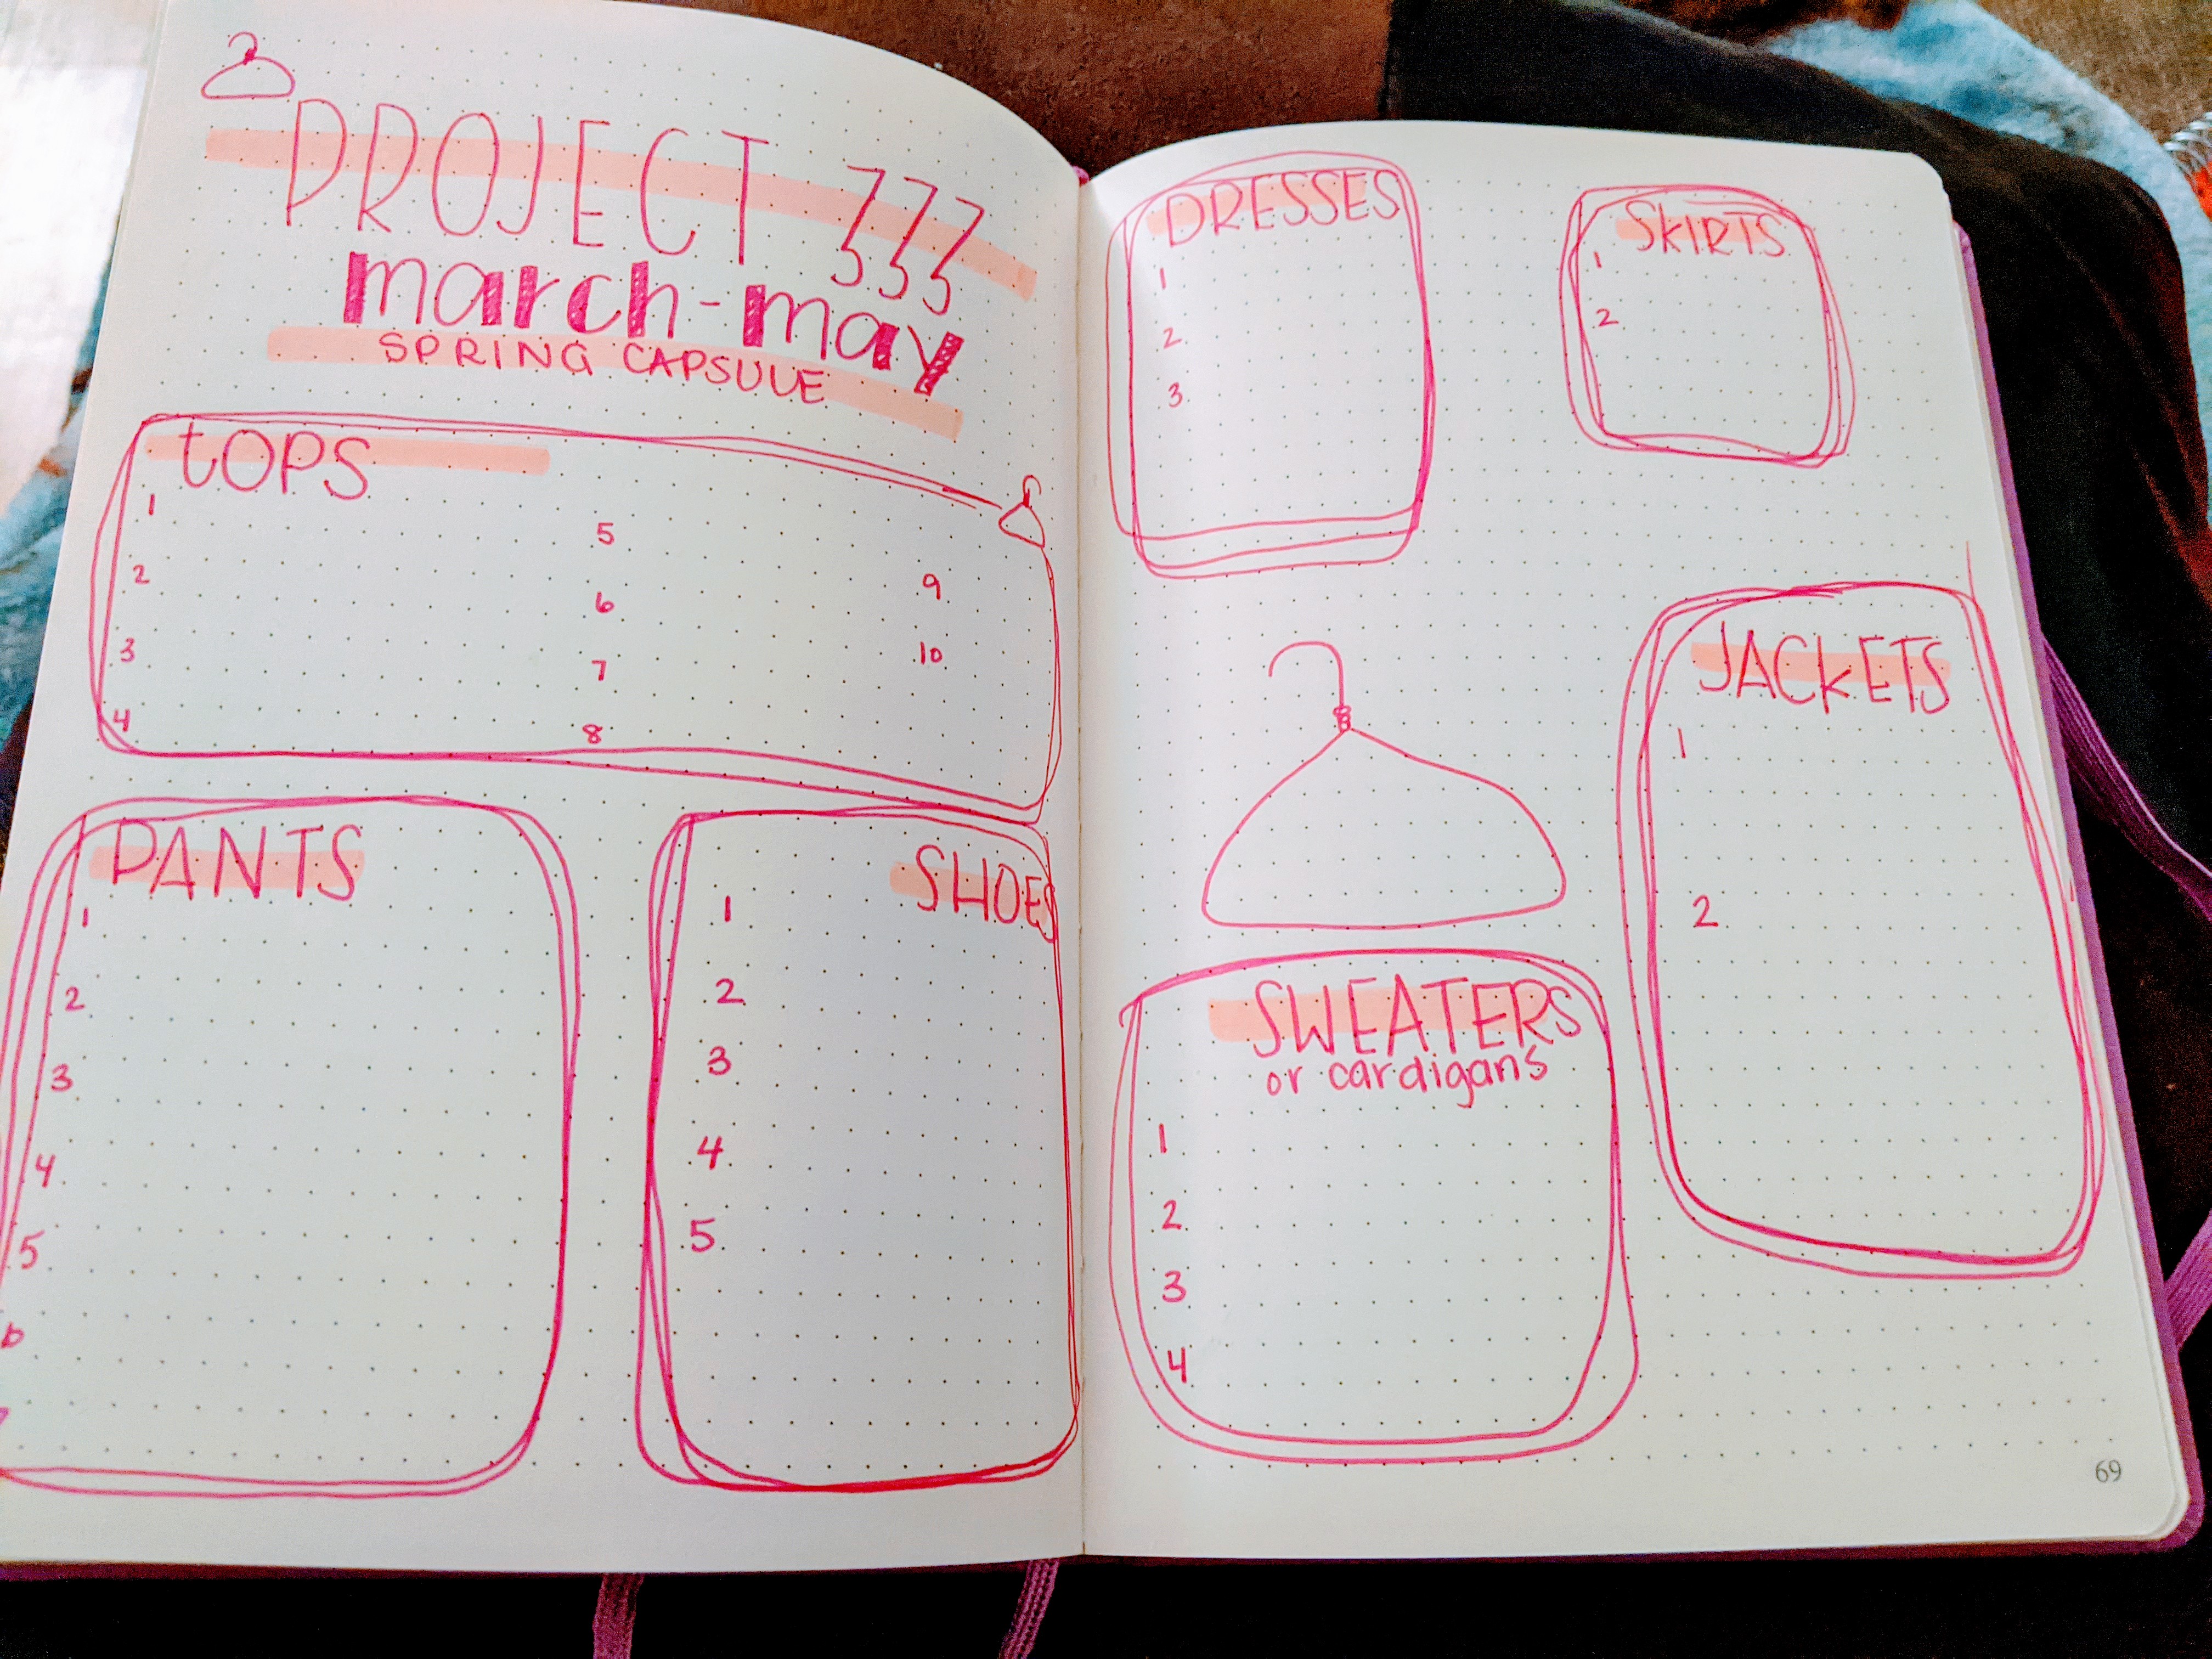 PROJECT 333
march-may
SPRING CAPSULE
tOPS
1
2
3
4
5
6
7
8
9
10
PANTS
1
2
3
4
5
6
7
SHOES
1
2
3
4
5
DRESSES
1
2
3
SKIRTS
1
2
JACKETS
1
2
SWEATERS
or cardigans
1
2
3
4
69